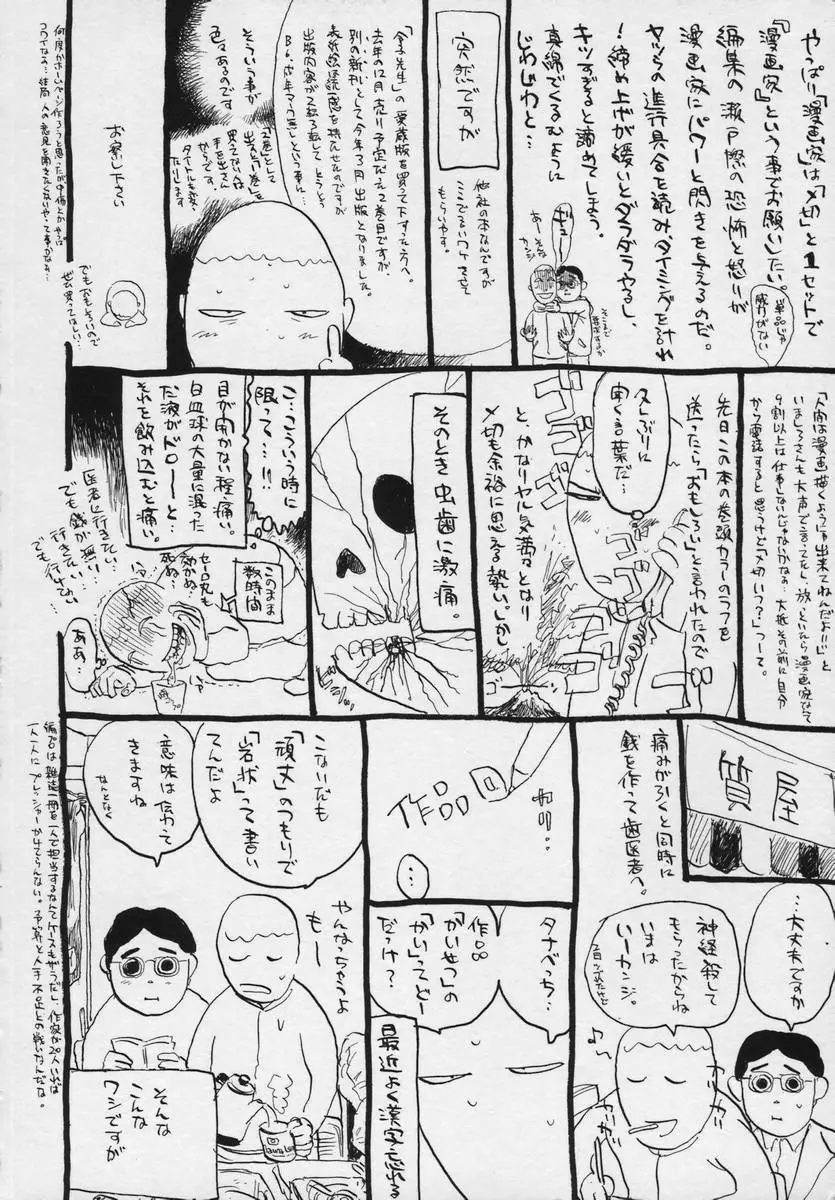 やっぱり「漫画家」は「〆切」と1セットで
『漫画家』という事でお願いしたい。
単品じゃ
威力がない
編集の瀬戸際の恐怖と怒りが
漫画家にパワーと閃きを与えるのだ。
ヤツらの進行具合を読み、タイミングを計れ
!締め上げが緩いとダラダラやるし、
キツすぎると諦めてしまう。
真綿でくるむように
じわじわと…
ギュ
あーそんな
カンジ
突然ですが
他社の本なんですが
もらいやす。
「金子先生」の愛蔵版を買って下すった方へ。
去年の12月売り予定だった2巻目ですが
別の新刊として今年3月出版となりました。
そういう事が
色々あるのです
「2巻」として
買えない人は
手を出さん
からです。
タイトルも変
たりします
お察し下さい
でもおもしろいので
ぜひ買ってほしい…
何度かホームページ作ろうと思ったが
「人間は漫画描くようにゃ出来てねんだよ!!」と
いましろさんも大声で言ってたし、放っといたら漫画家なんて
9割以上は仕事しないんじゃないかなぁ。大抵その前に自分
から電話すると思うけど「〆切いつ?」つーて。
先日この本の巻頭カラーのラフを
送ったら「おもしろい」と言われたので
久しぶりに
聞く言葉だ…
ゴゴゴゴ
ゴゴゴ
と、かなりヤル気満々となり
〆切も余裕に思える勢い。しか
ゴ
そのとき虫歯に激痛。
こ…こういう時に
限って…!!
目が開かない程痛い。
白血球の大量に混った
だ液がドローーと…
それを飲み込むと痛い。
このまま
数時間
セーロ丸も
効かぬ…
死ぬ…
医者に行きたい…
でも銭が無い…
行きたい…
でも行けない…
ああ…
質屋
痛みが引くと同時に
銭を作って歯医者へ。
…大丈夫ですか
神経殺して
もらったからね
いまは
いーカンジ。
♪
カリカリ
カリカリ
作品回
カリ…
…
タナベっち…
作品
「かいせつ」の
「かい」ってどー
だっけ?
最近よく漢字忘れる
こないだも
「頑丈」のつもりで
「岩状」って書い
てんだよ
意味は伝わって
きますね
なんとなく
やんなっちゃうよ
もー
そんな
こんな
ワシですが
編プロは雑誌一冊を一人で担当するなんてケースもザラだし、作家が20人いれば
一人一人にプレッシャーかけてらんない。予算と人手不足との戦いなんだな。